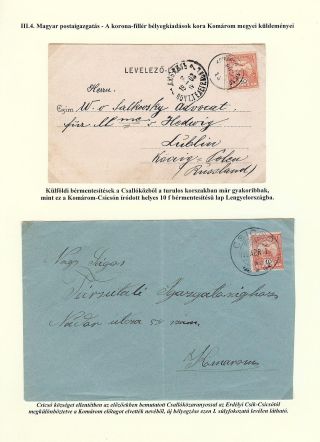 III.4. Magyar postaigazgatás - A korona-fillér bélyegkiadások kora Komárom megyei küldeményei
LEVELEZŐ-
Herrn
Czim: W. v Salkowsky Advocat
für Mme Hedwig
Lublin
Russ. Polen
(Russland)
Külföldi bérmentesítések a Csallóközből a turulos korszakban már gyakoribbak,
mint ez a Komárom-Csicsón íródott helyes 10 f bérmentesítésű lap Lengyelországba.
Nagy
Nádor utcza 54 szám
Komarom
Csicsó községet ellentétben az előzőekben bemutatott Csallóközaranyossal az Erdélyi Csík-Csicsótól
megkülönböztetve a Komárom előtagot elvették nevéből, új bélyegzése ezen I. súlyfokozatú levélen látható.